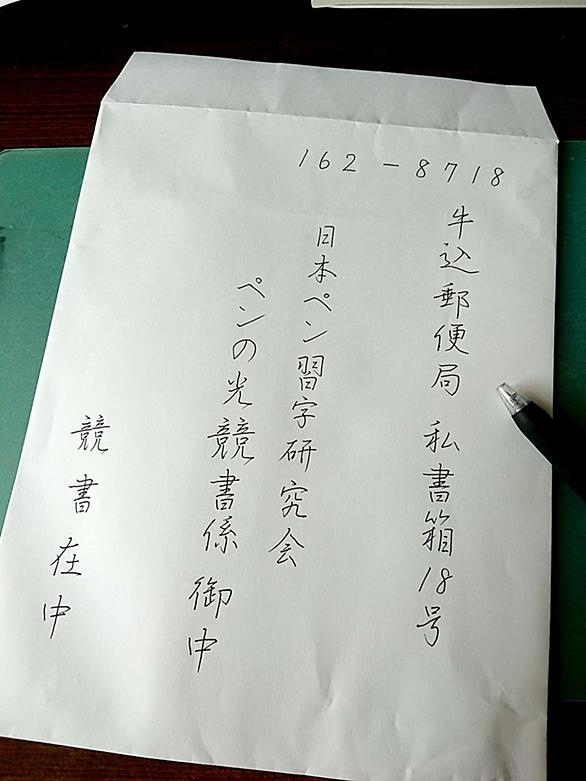 162-8718
牛込郵便局 私書箱18号
日本ペン習字研究会
ペンの光競書係 御中
競書在中